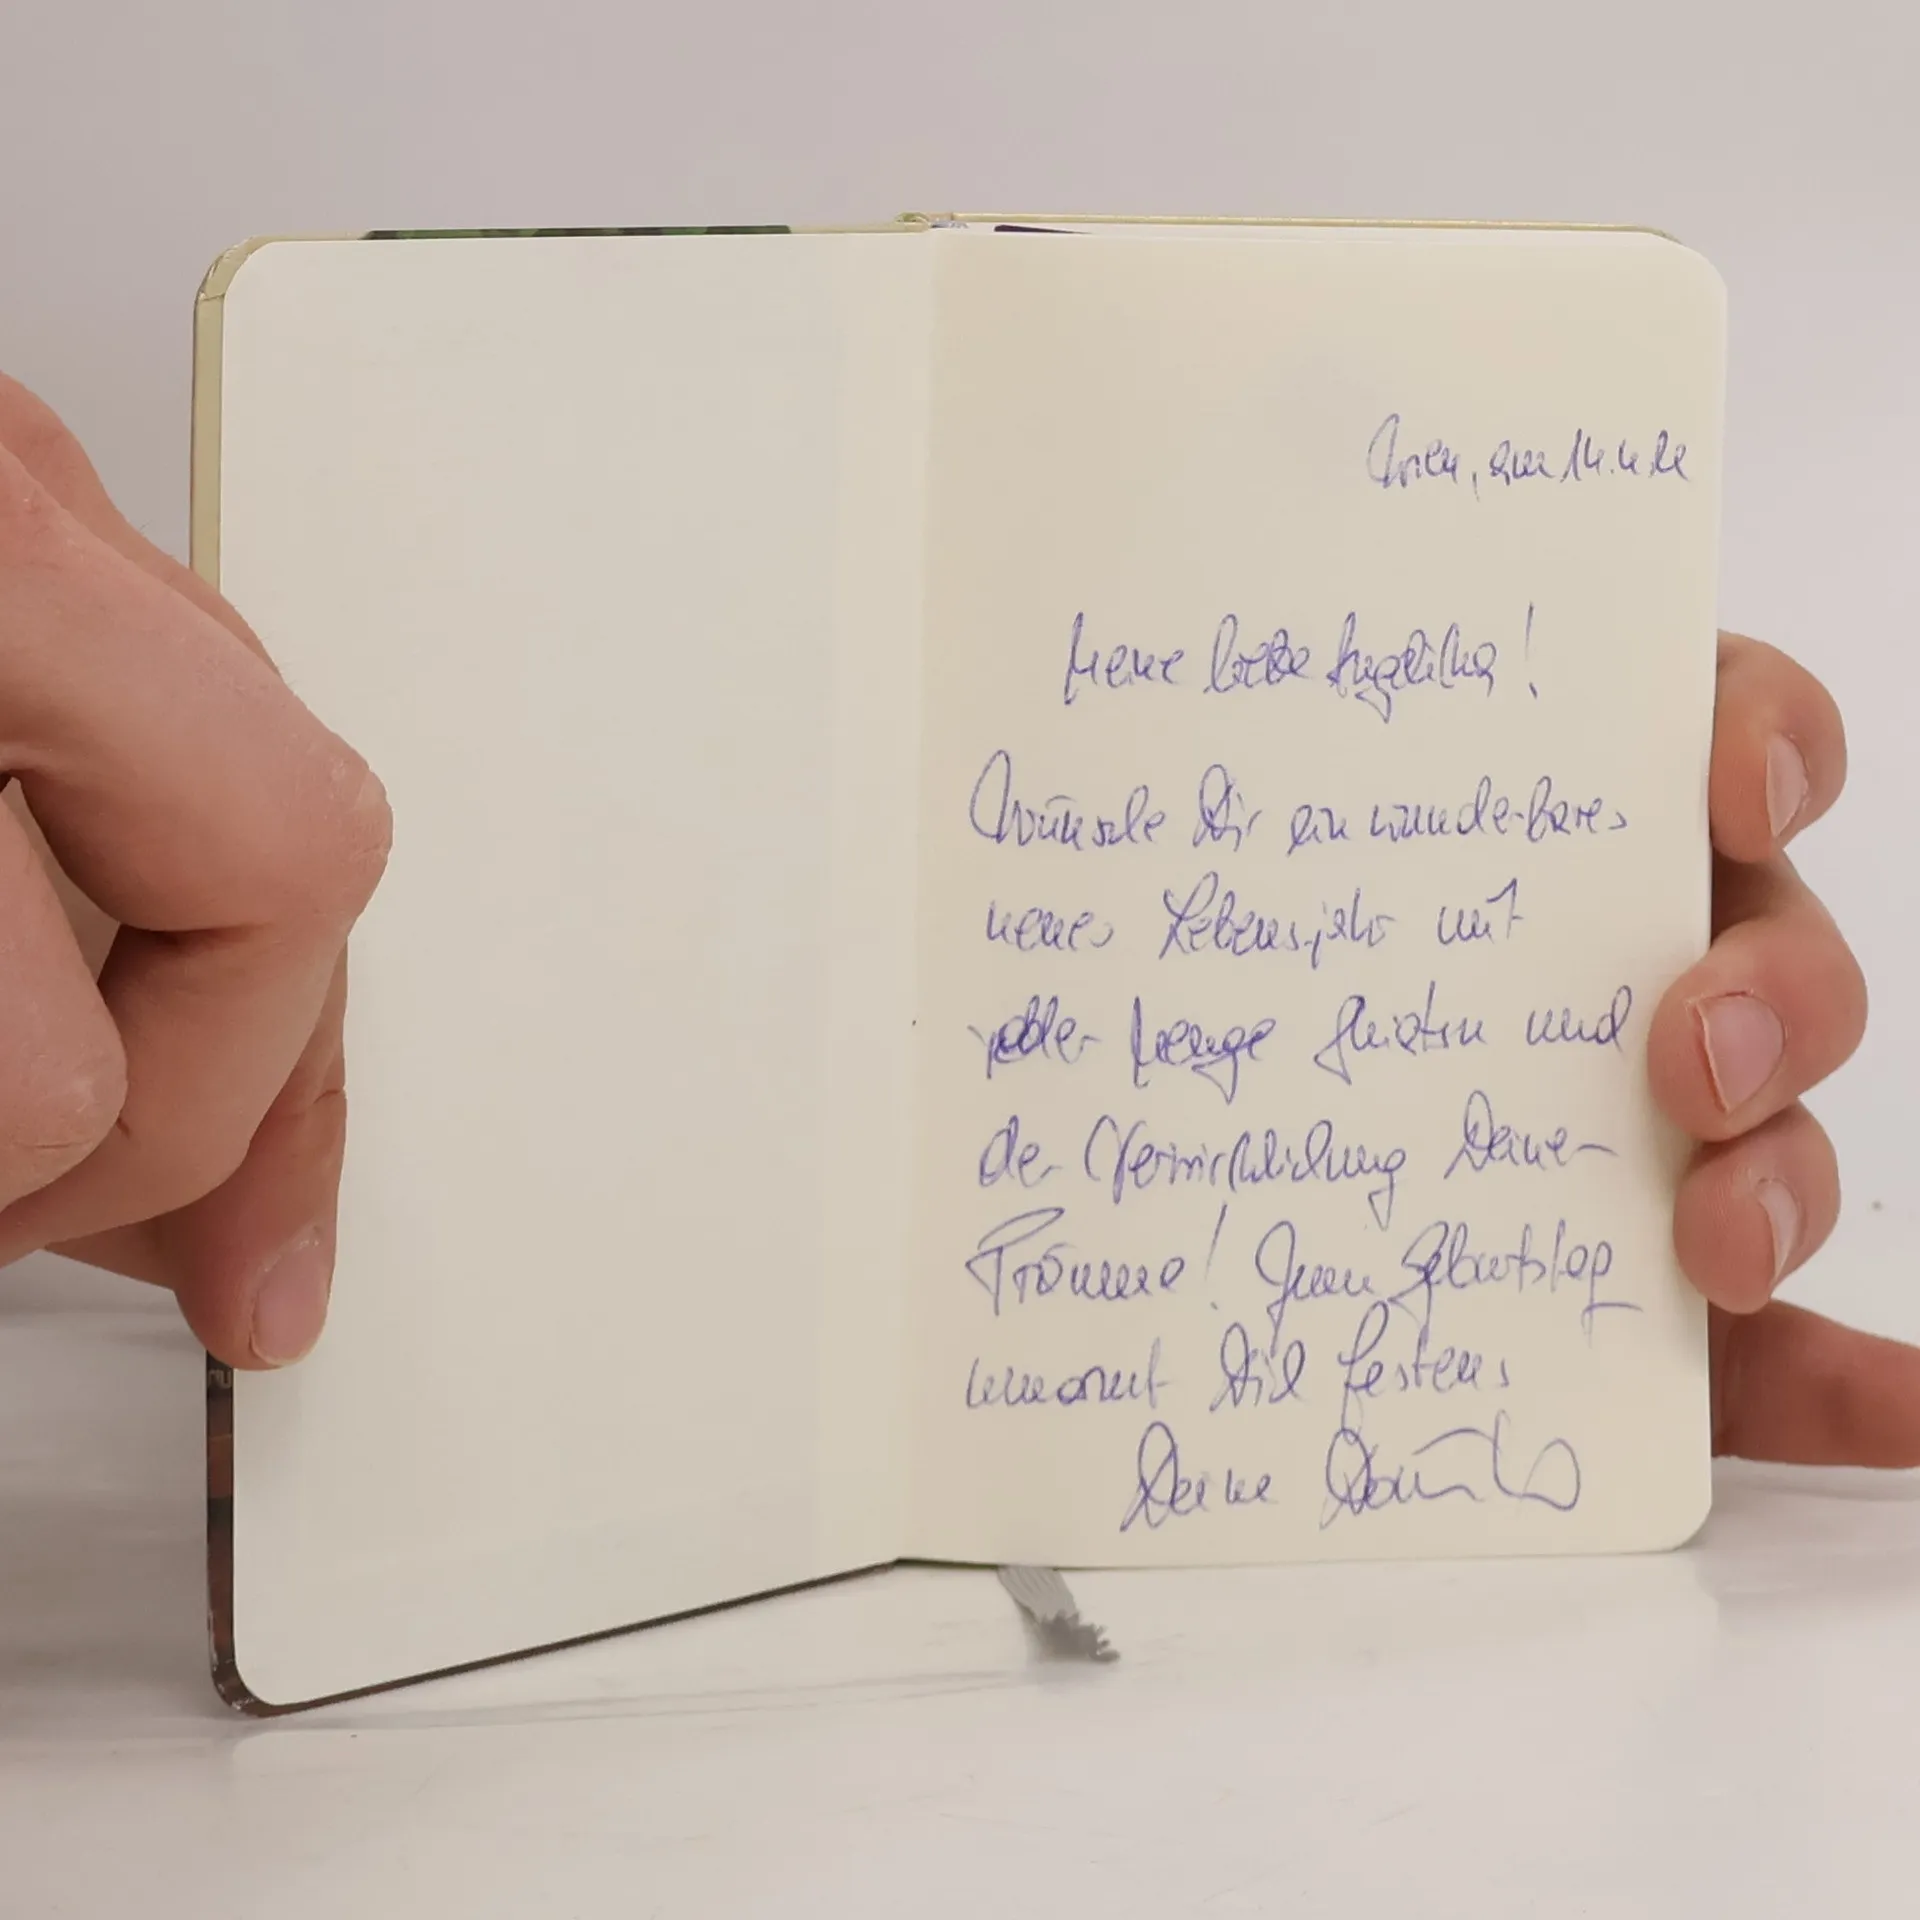 Wien, am 14.4.
Meine liebe Angelika!
Wünsche Dir ein wunderbares
neues Lebensjahr mit
jeder Menge und
der Verwirklichung Deiner
Träume! Zum Geburtstag
umarmt Dich festens
Deine